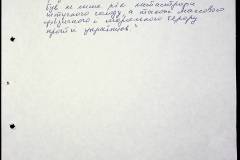 був не лише рік катастрофи
штучного голоду, а також масового
фізичного і морального терору
проти українців."